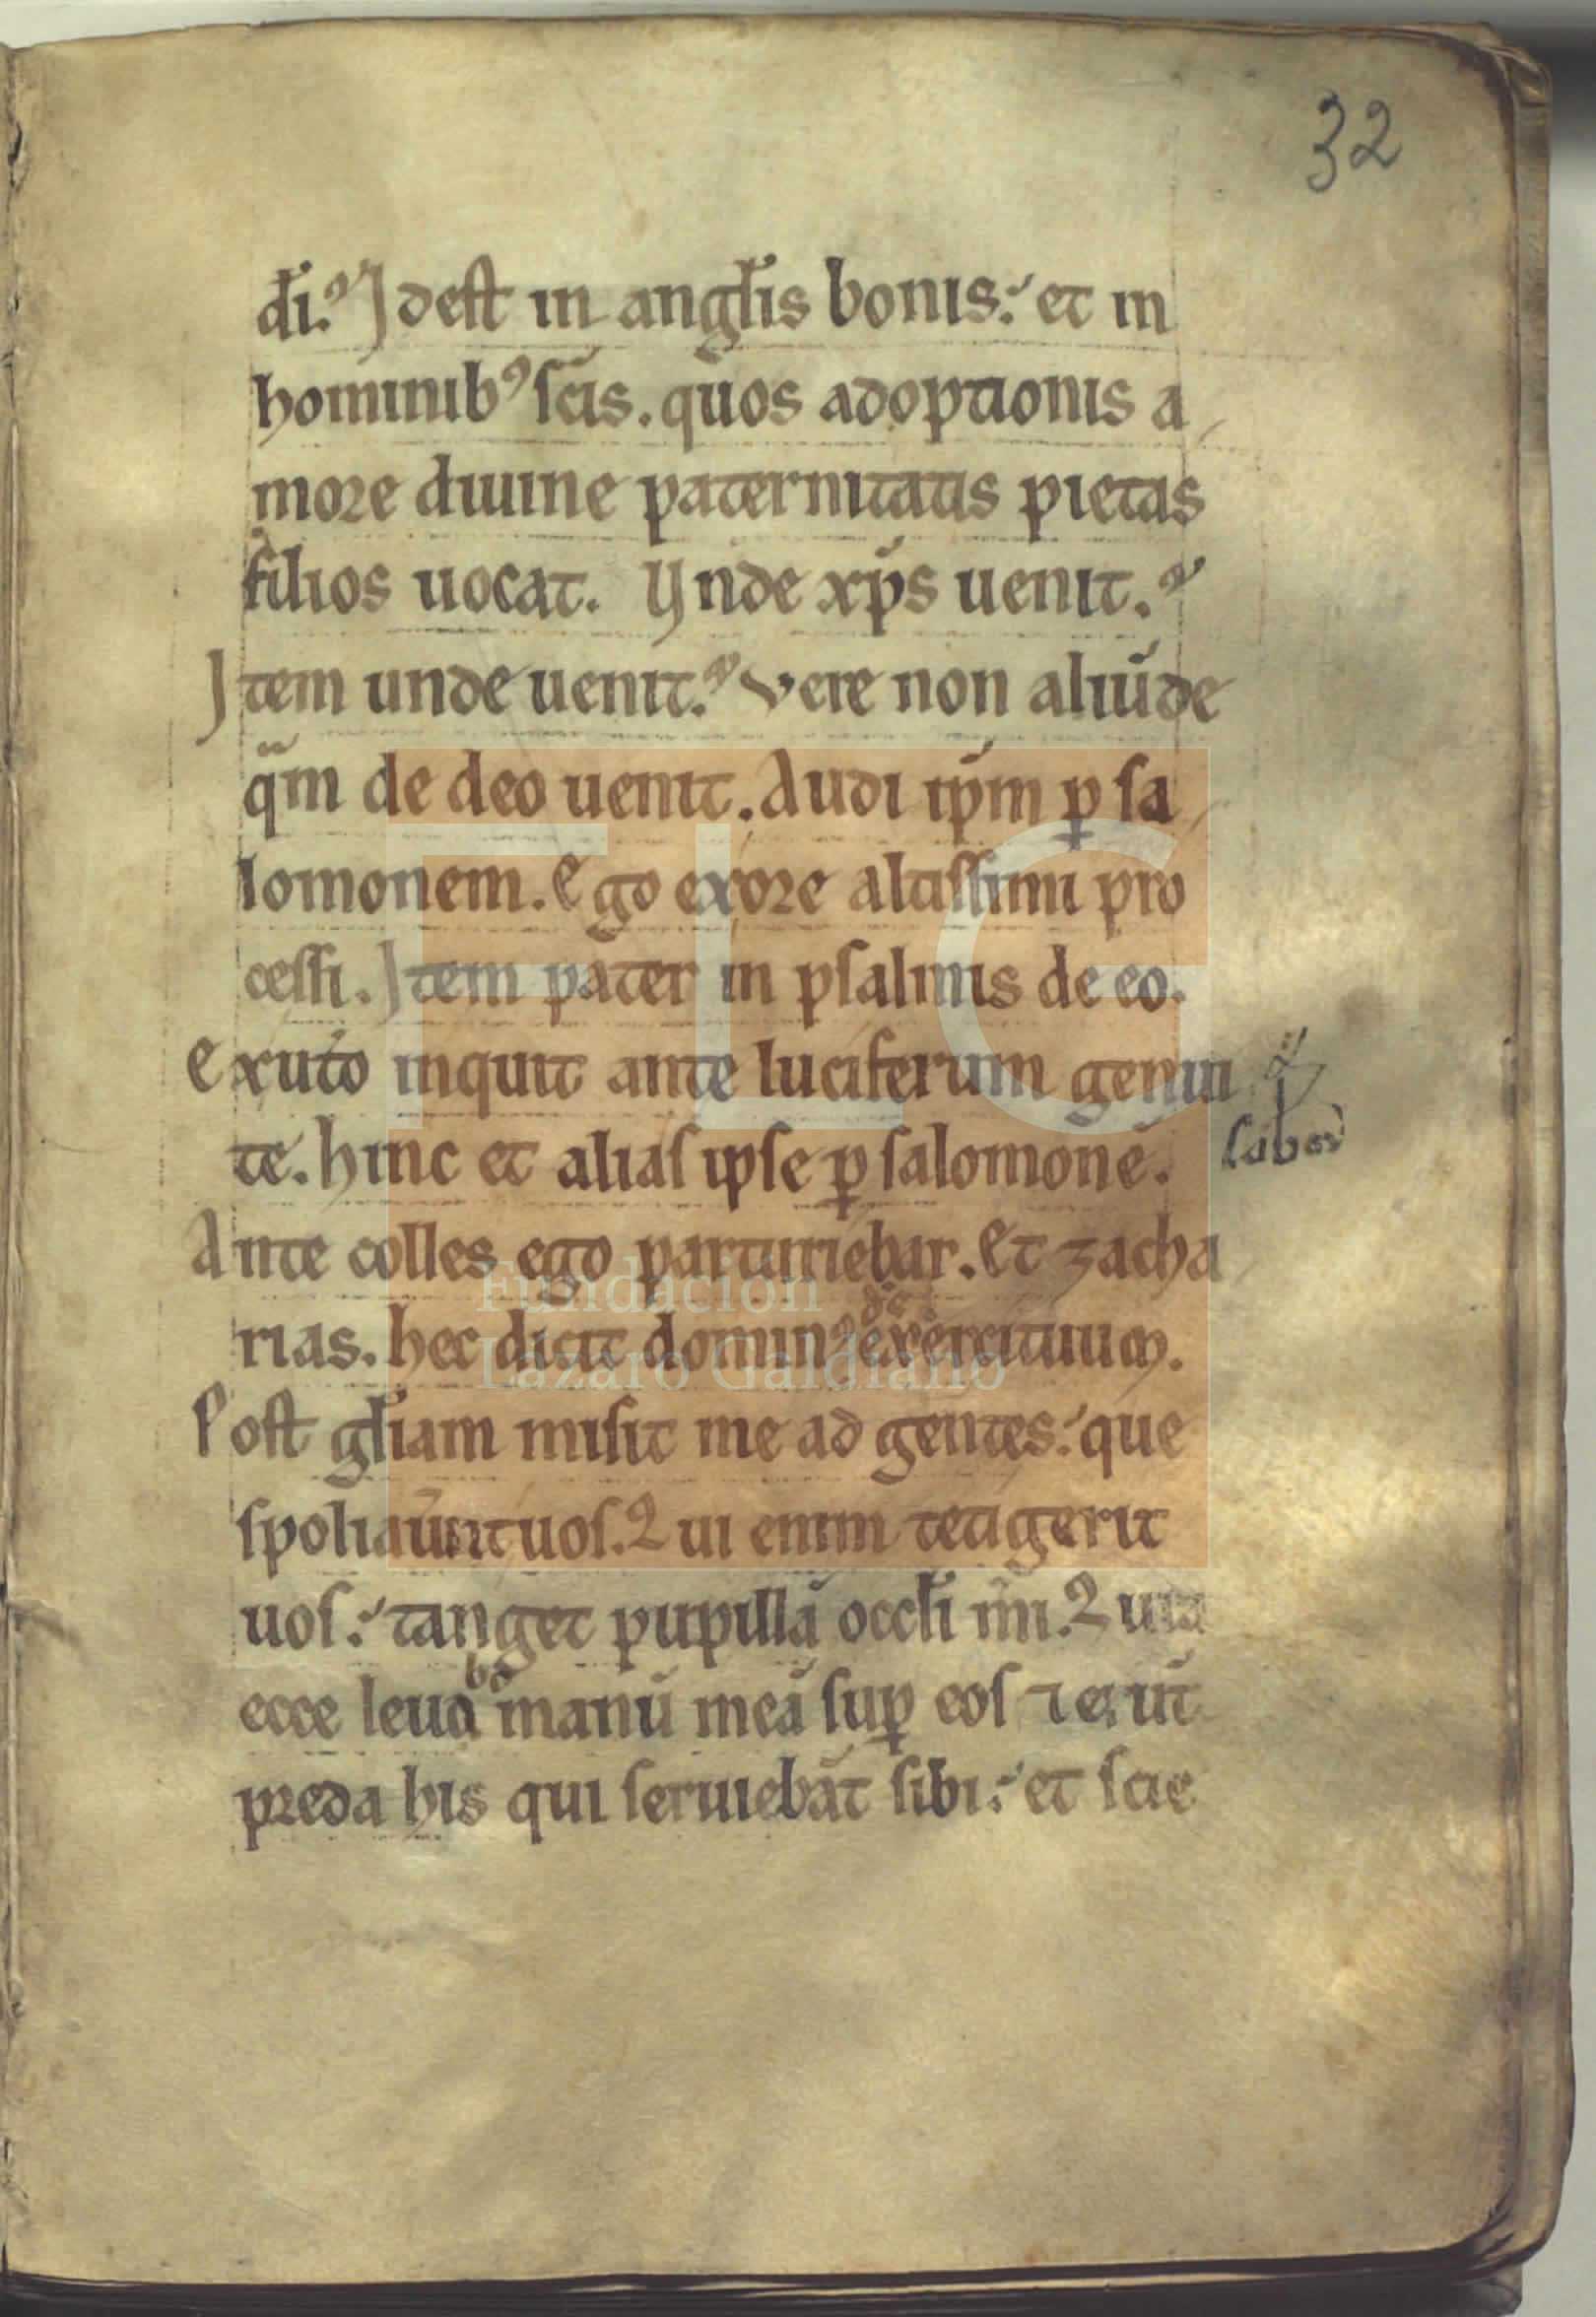 32
di̅.ꝰ Idest in angl̅is bonis. et in
hominibꝰ sc̅is. quos adoptionis a
more diuine paternitatis pietas
filios uocat. Vnde xp̅s uenit.
Item unde uenit. Vere non aliu̅de
qua̅m de deo uenit. Audi ip̅m ꝑ sa
lomonem. Ego exore altissimi pro
cessi. Item pater in psalmis de eo.
exut̅o inquit ante luciferum genui
te. hinc et alias ipse ꝑ salomone̅.
Ante colles ego parturiebar. Et zacha
rias. hec dicit dominꝰ exercituum.
Post gl̅iam misit me ad gentes. que
spoliau̅nt uos. Qui enim tetigerit
uos. tanget pupilla̅ occl̅i m̅i. Quia
ecce leuabo manu̅ mea̅ suꝑ eos ⁊ eru̅t
preda his qui seruieba̅t sibi. et scie
FLG
Fundación
Lázaro Galdiano